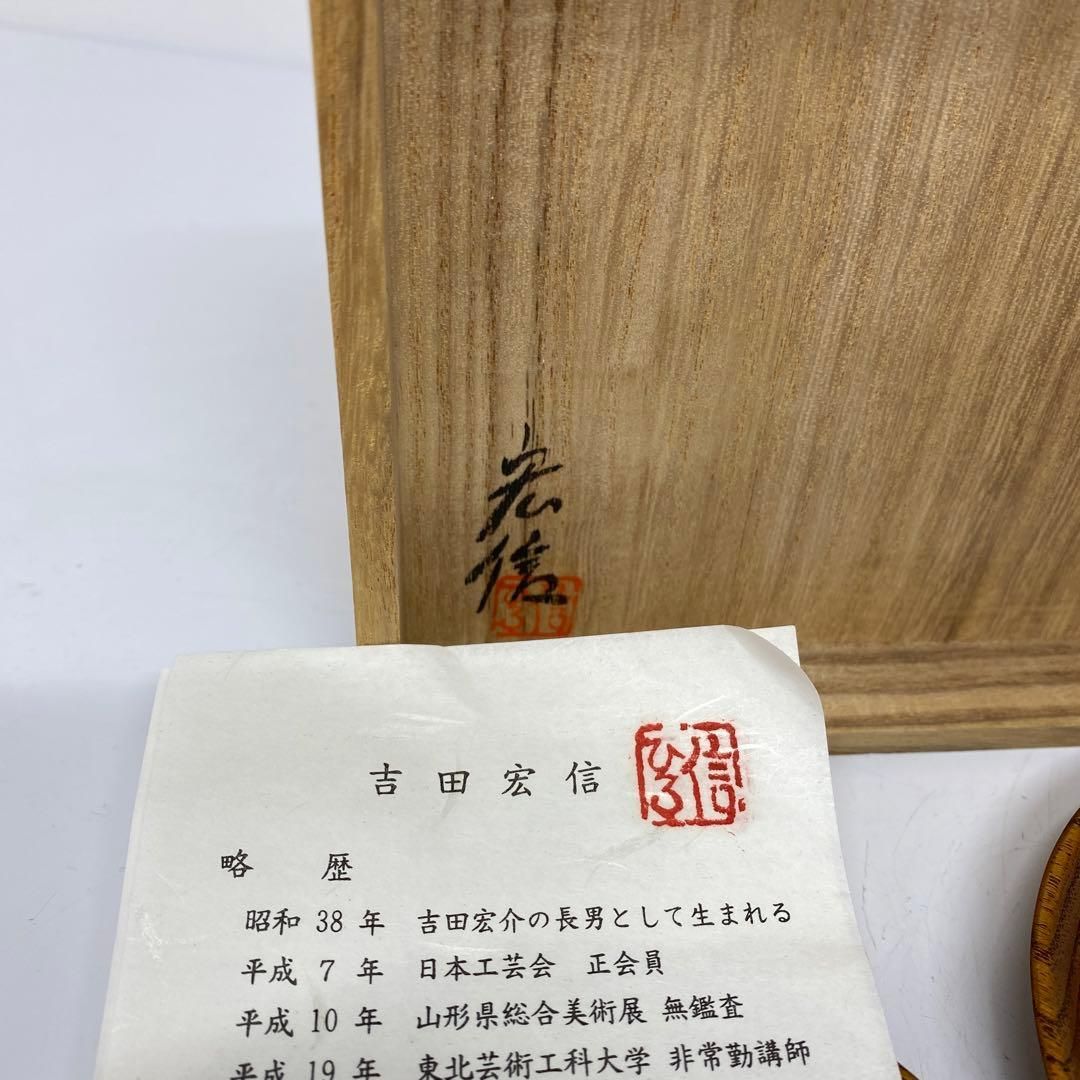 宏信
吉田宏信
略 歴
昭和 38 年 吉田宏介の長男として生まれる
平成 7 年 日本工芸会 正会員
平成 10 年 山形県総合美術展 無鑑査
平成 19 年 東北芸術工科大学 非常勤講師